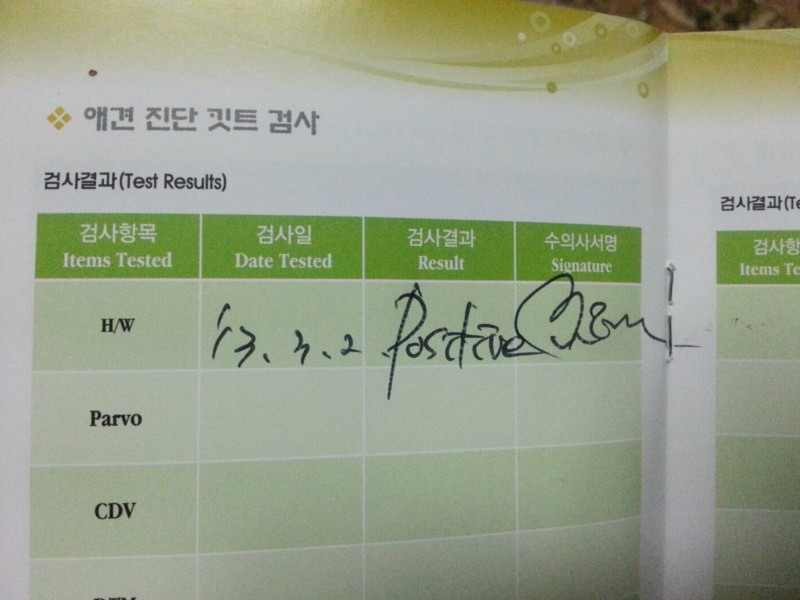 애견 진단 킷트 검사
검사결과(Test Results)
검사항목 검사일 검사결과 수의사서명
Items Tested Date Tested Result Signature
H/W '13. 3. 2. Positive
Parvo
CDV
검사결과(Te
검사항
Items Te